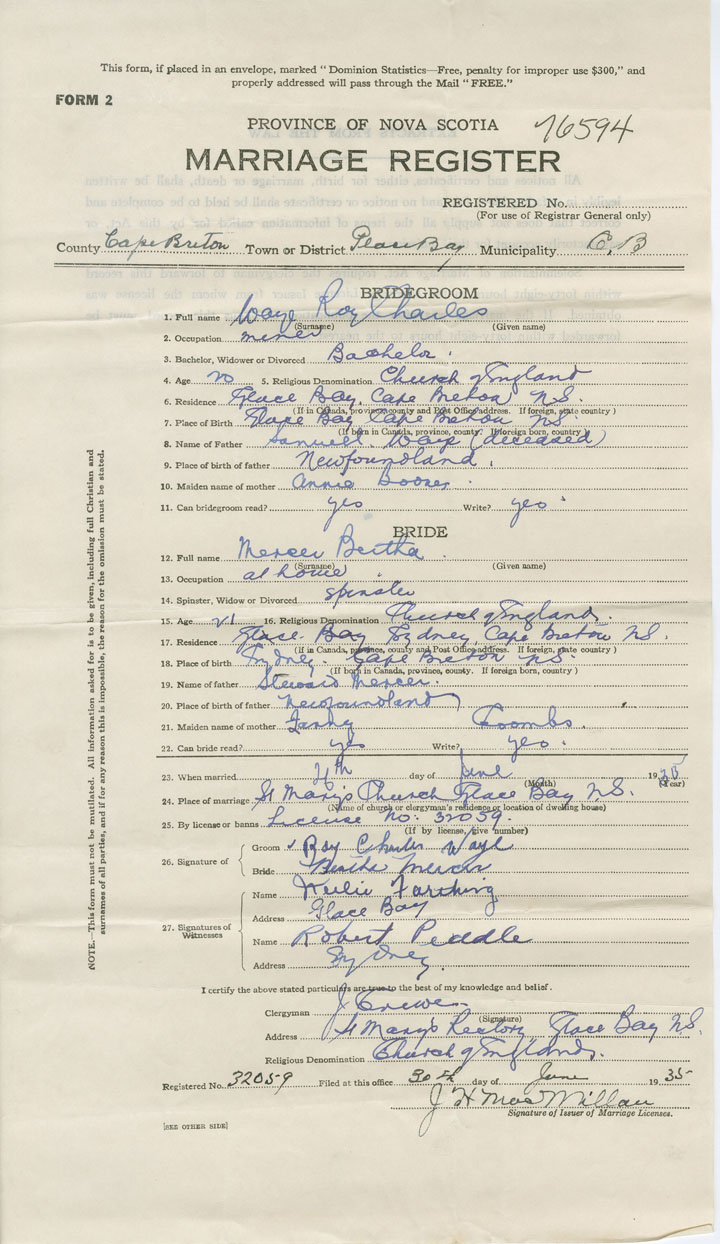 This form, if placed in an envelope, marked "Dominion Statistics—Free, penalty for improper use $300," and
properly addressed will pass through the Mail "FREE."
FORM 2
PROVINCE OF NOVA SCOTIA 76594
MARRIAGE REGISTER
REGISTERED No.
(For use of Registrar General only)
County Cape Breton Town or District Glace Bay Municipality C.B
BRIDEGROOM
1. Full name Waye Roy Charles
(Surname) (Given name)
2. Occupation miner
3. Bachelor, Widower or Divorced Bachelor.
4. Age 20 5. Religious Denomination Church of England
6. Residence Glace Bay Cape Breton N.S.
(If in Canada, province, county and Post Office address. If foreign, state country)
7. Place of Birth Glace Bay Cape Breton N.S.
(If born in Canada, province, county. If foreign born, country)
8. Name of Father Samuell Waye (deceased)
9. Place of birth of father Newfoundland
10. Maiden name of mother Annie
11. Can bridegroom read? yes Write? yes
BRIDE
12. Full name Mercer Bertha
(Surname) (Given name)
13. Occupation at home
14. Spinster, Widow or Divorced spinster
15. Age 21 16. Religious Denomination Church of England.
17. Residence Glace Bay Sydney Cape Breton N.S.
(If in Canada, province, county and Post Office address. If foreign, state country)
18. Place of birth Sydney. Cape Breton N.S.
(If born in Canada, province, county. If foreign born, country)
19. Name of father Steward Mercer.
20. Place of birth of father Newfoundland
21. Maiden name of mother Fanny Coombs.
22. Can bride read? yes Write? yes.
23. When married 4th day of June 1935
(Month) (Year)
24. Place of marriage St Mary's Church Glace Bay N.S.
(Name of church or clergyman's residence or location of dwelling house)
25. By license or banns License No. 32059.
(If by license, give number)
26. Signature of
Groom Roy Charles Waye
Bride Bertha Mercer
27. Signatures of Witnesses
Name Farthing
Address Glace Bay
Name Robert Peddle
Address Sydney.
I certify the above stated particulars are true to the best of my knowledge and belief.
Clergyman J Crewe
(Signature)
Address St Mary's Rectory Glace Bay N.S.
Religious Denomination Church of England.
Registered No. 32059 Filed at this office 30th day of June 1935
J H MacMillan
Signature of Issuer of Marriage Licenses.
[SEE OTHER SIDE]
NOTE.—This form must not be mutilated. All information asked for is to be given, including full Christian and
surnames of all parties, and if for any reason this is impossible, the reason for the omission must be stated.